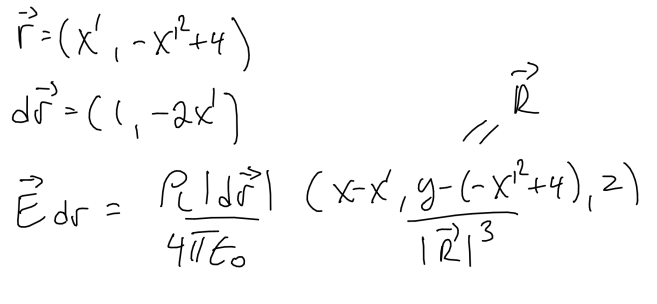 r⃗ = (x', -x'²+4)
dr⃗ = (1, -2x')
R⃗
//
E⃗ dr = ρL |dr⃗| / 4πε₀ (x-x', y-(-x'²+4), z) / |R⃗|³